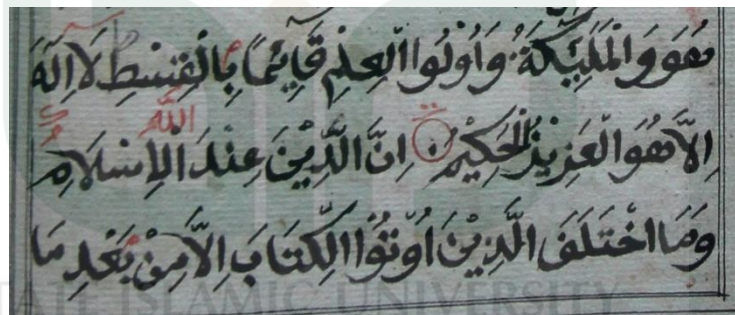 هُوَ وَالْمَلٰٓئِكَةُ وَاُولُوا الْعِلْمِ قَآئِمًا بِالْقِسْطِ لَا اِلٰهَ
اِلَّا هُوَ الْعَزِيْزُ الْحَكِيْمُ اِنَّ الدِّيْنَ عِنْدَ اللّٰهِ الْاِسْلَامُ
وَمَا اخْتَلَفَ الَّذِيْنَ اُوْتُوا الْكِتَابَ اِلَّا مِنْ بَعْدِ مَا
STATE ISLAMIC UNIVERSITY